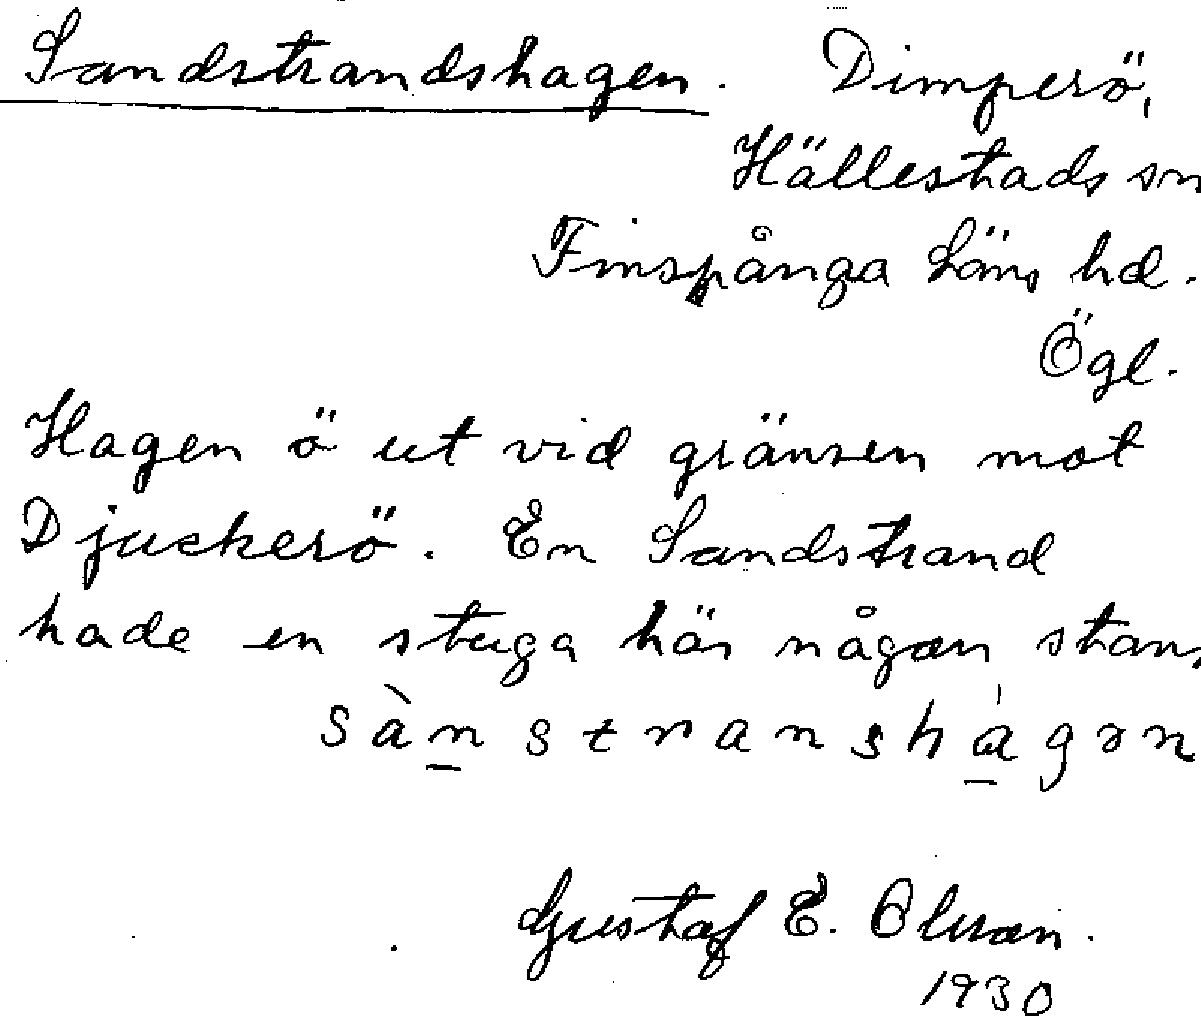 Sandstrandshagen. Dimperö,
Hällestads sn
Finspånga läns hd.
Ögl.
Hagen ö ut vid gränsen mot
Djuckerö. En Sandstrand
hade en stuga här någon stans
sànstranshágən
Gustaf E. Olsson.
1930